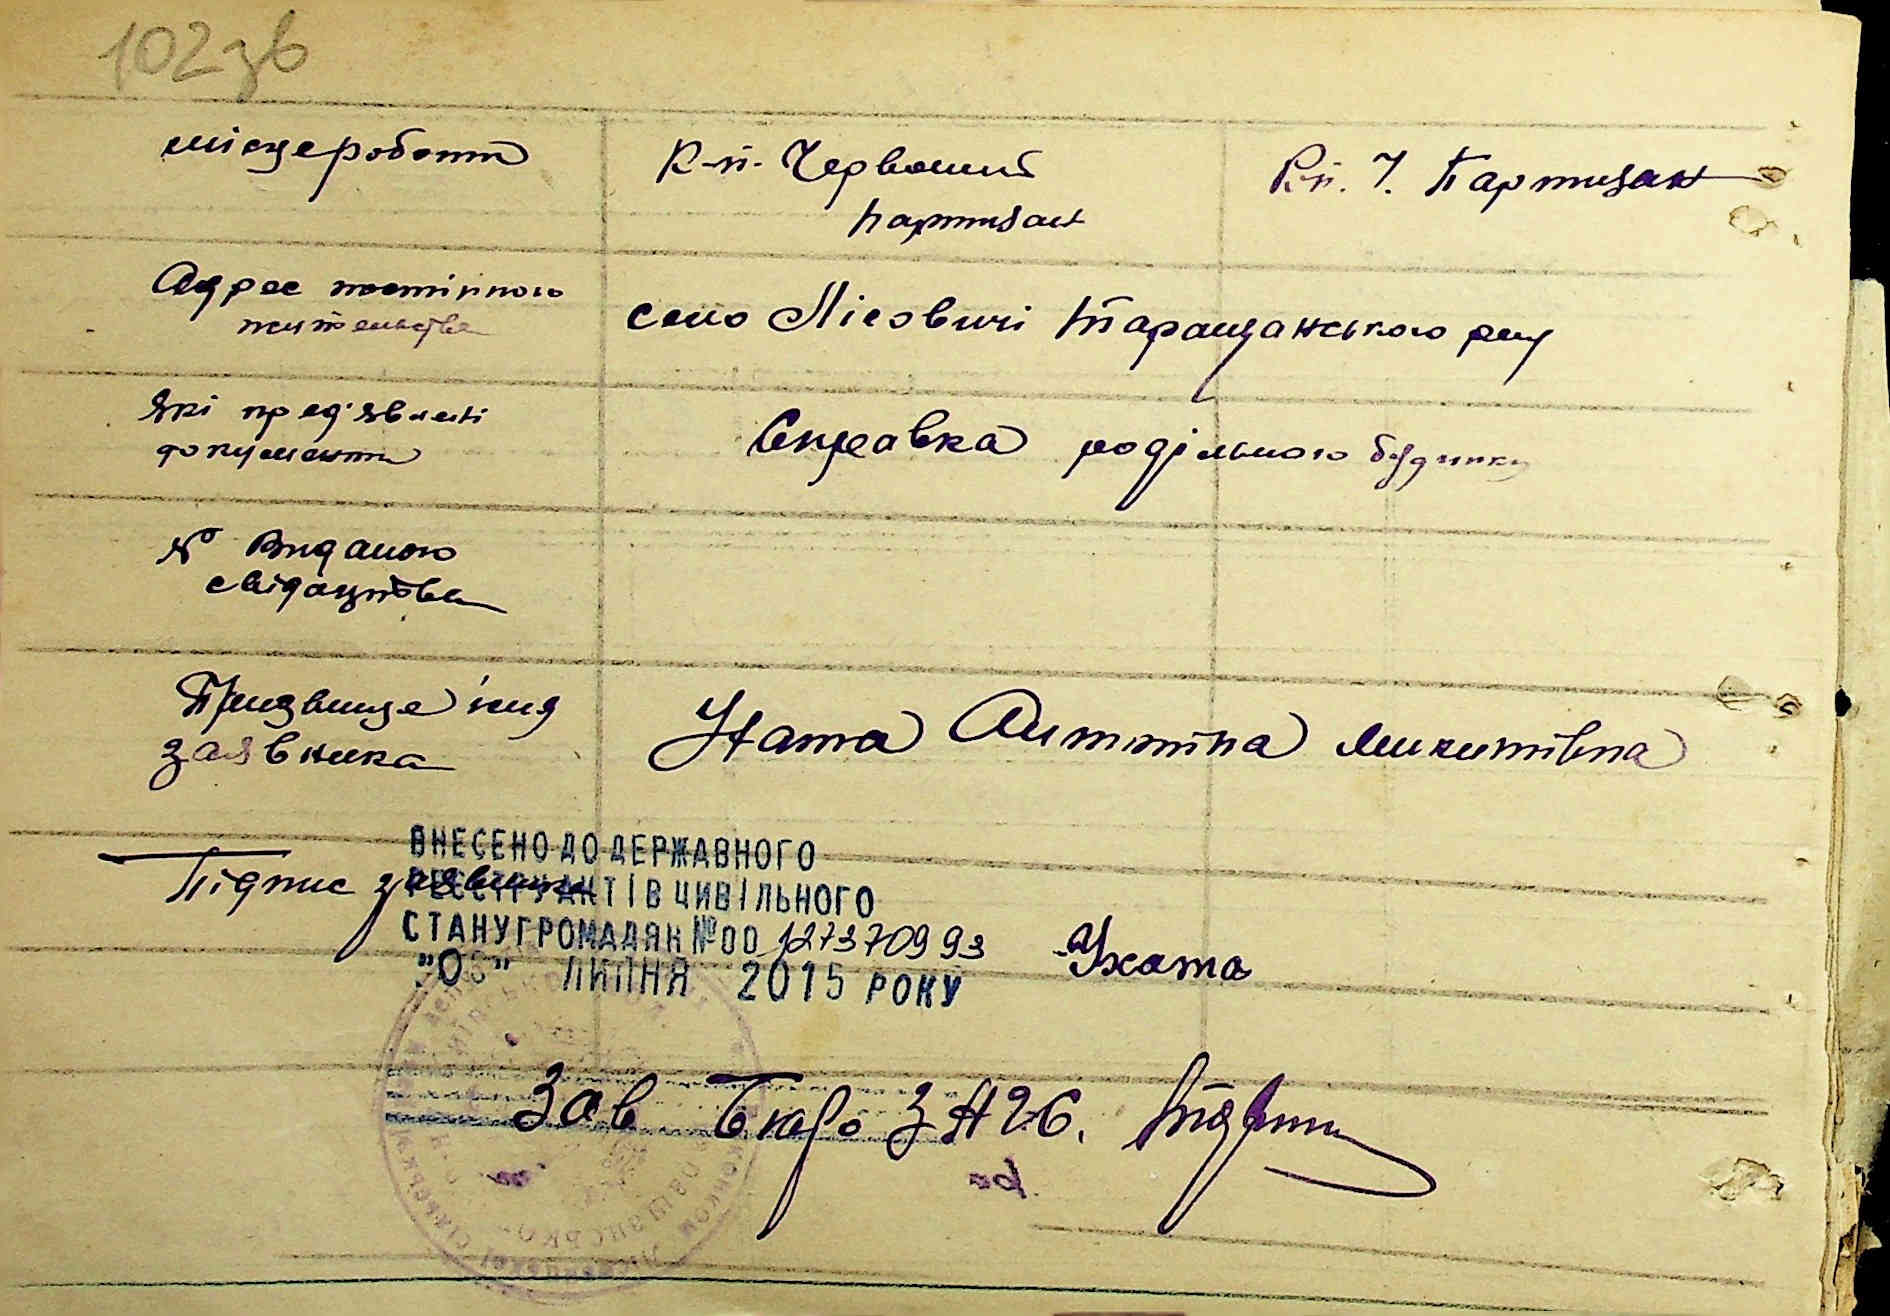 102зв
місце роботи
К-п. Червоний
партизан
К-п. Ч. Партизан
Адрес постійного
жительства
село Лісовичі Таращанського р-ну
Які пред'явлені
документи
Справка родільного будинку
№ виданого
свідоцтва
Призвище і імя
заявника
Ухата Антоніна Микитівна
Підпис заявника
ВНЕСЕНО ДО ДЕРЖАВНОГО
РЕЄСТРУ АКТІВ ЦИВІЛЬНОГО
СТАНУ ГРОМАДЯН №00 127370993
ЛИПНЯ 2015 РОКУ
Ухата
Зав Бюро ЗАГС.